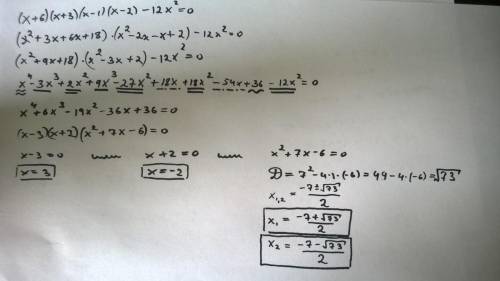 (x+6)(x+3)(x-1)(x-2)-12x²=0
(x²+3x+6x+18)·(x²-2x-x+2)-12x²=0
(x²+9x+18)·(x²-3x+2)-12x²=0
x⁴-3x³+2x²+9x³-27x²+18x+18x²-54x+36-12x²=0
x⁴+6x³-19x²-36x+36=0
(x-3)(x+2)(x²+7x-6)=0
x-3=0 или x+2=0 или x²+7x-6=0
x=3 x=-2 D=7²-4·1·(-6)=49-4·(-6)=√73
x₁,₂=(-7±√73)/2
x₁=(-7+√73)/2
x₂=(-7-√73)/2